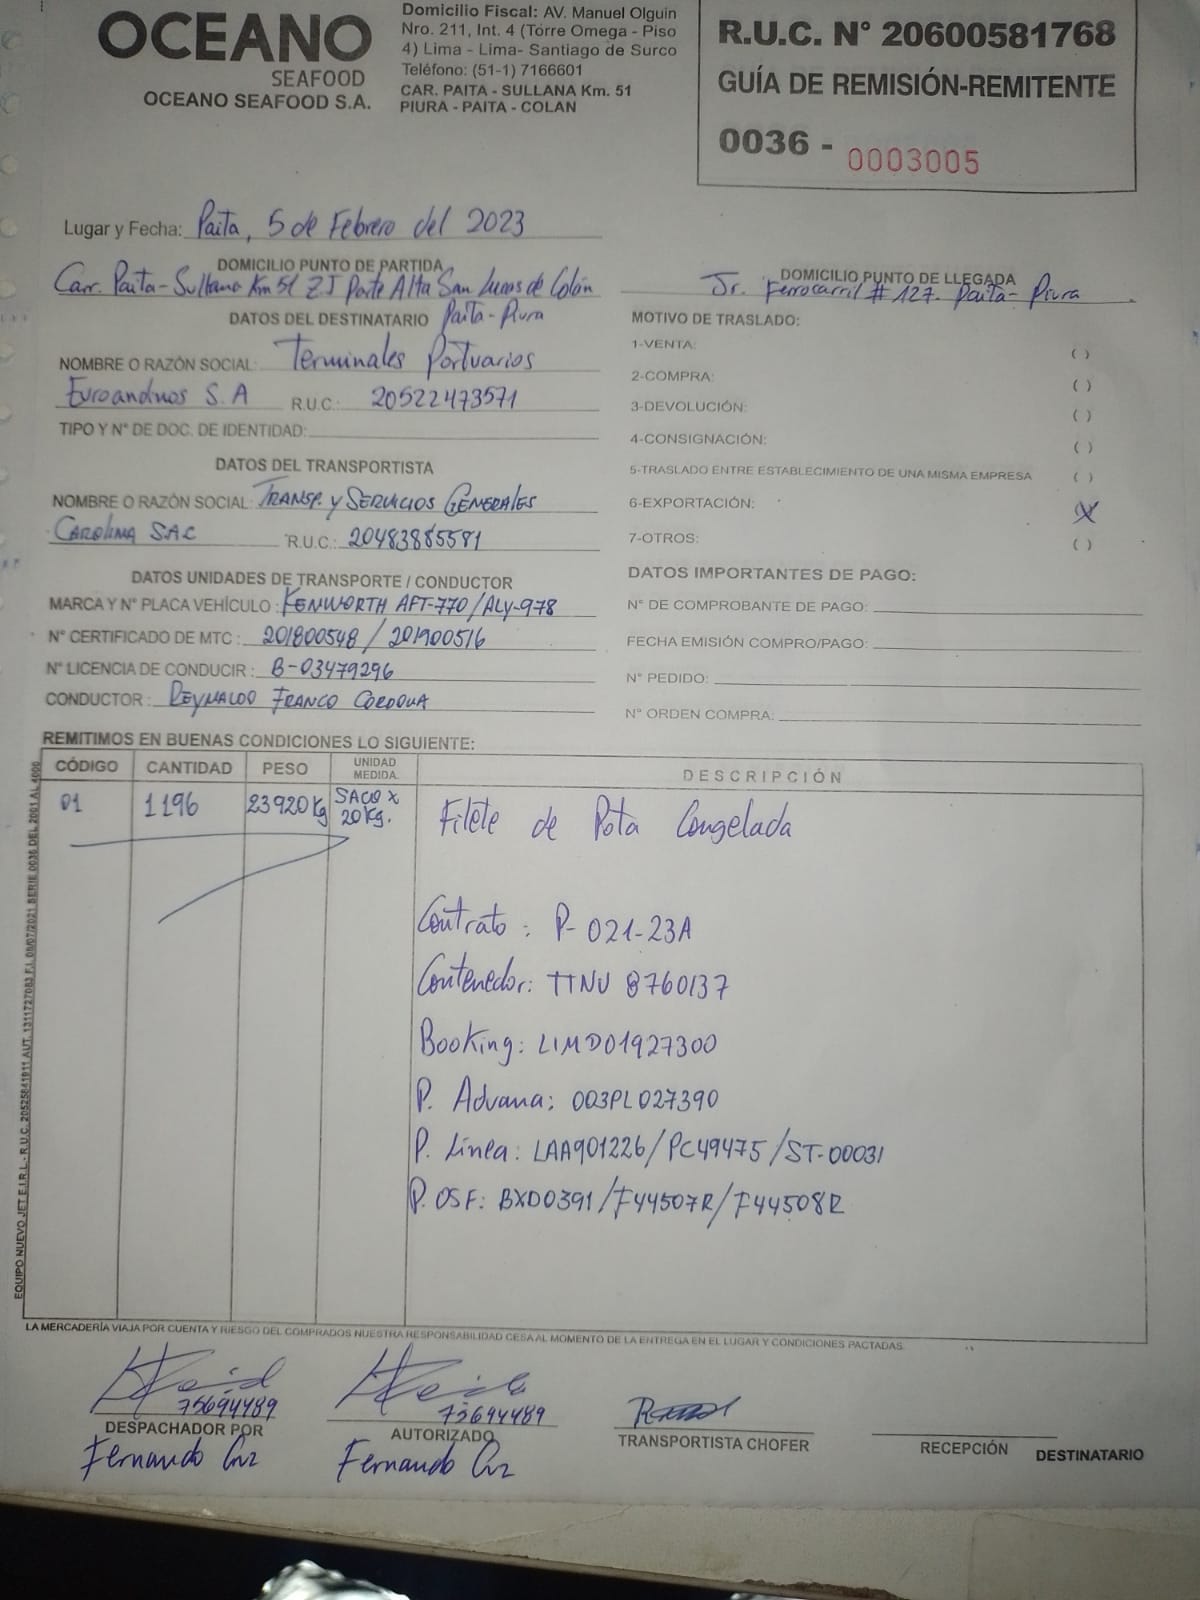 OCEANO
SEAFOOD
OCEANO SEAFOOD S.A.
Domicilio Fiscal: AV. Manuel Olguin
Nro. 211, Int. 4 (Torre Omega - Piso
4) Lima - Lima- Santiago de Surco
Teléfono: (51-1) 7166601
CAR. PAITA - SULLANA Km. 51
PIURA - PAITA - COLAN
R.U.C. N° 20600581768
GUÍA DE REMISIÓN-REMITENTE
0036 - 0003005
Lugar y Fecha: Paita, 5 de Febrero del 2023
DOMICILIO PUNTO DE PARTIDA
Carr. Paita-Sullana Km 51 Z.I Parte Alta San Lucas de Colón
Paita-Piura
DOMICILIO PUNTO DE LLEGADA
Jr. Ferrocarril # 127. Paita- Piura
DATOS DEL DESTINATARIO
NOMBRE O RAZÓN SOCIAL: Terminales Portuarios
Euroandinos S.A R.U.C.: 20522473571
TIPO Y N° DE DOC. DE IDENTIDAD:
DATOS DEL TRANSPORTISTA
NOMBRE O RAZÓN SOCIAL: TRANSP. Y SERVICIOS GENERALES
CAROLINA SAC R.U.C.: 20483885581
DATOS UNIDADES DE TRANSPORTE / CONDUCTOR
MARCA Y N° PLACA VEHÍCULO: KENWORTH AFT-770/ALY-978
N° CERTIFICADO DE MTC: 201800548 / 201900516
N° LICENCIA DE CONDUCIR: B-03479296
CONDUCTOR: REYNALDO FRANCO CORDOVA
MOTIVO DE TRASLADO:
1-VENTA: ( )
2-COMPRA: ( )
3-DEVOLUCIÓN: ( )
4-CONSIGNACIÓN: ( )
5-TRASLADO ENTRE ESTABLECIMIENTO DE UNA MISMA EMPRESA ( )
6-EXPORTACIÓN: X
7-OTROS: ( )
DATOS IMPORTANTES DE PAGO:
N° DE COMPROBANTE DE PAGO:
FECHA EMISIÓN COMPRO/PAGO:
N° PEDIDO:
N° ORDEN COMPRA:
REMITIMOS EN BUENAS CONDICIONES LO SIGUIENTE:
CÓDIGO CANTIDAD PESO UNIDAD MEDIDA. DESCRIPCIÓN
01 1196 23920 Kg SACO x 20 Kg. Filete de Pota Congelada
Contrato: P-021-23A
Contenedor: TTNU 8760137
Booking: LIMD01927300
P. Aduana: 003PL027390
P. Linea: LAA901226/PC49475/ST-00031
P. OSF: BXD0391/F44507R/F44508R
EQUIPO NUEVO JET E.I.R.L - R.U.C. 20525841911 AUT. 1311727083 F.I. 08/07/2021 SERIE 0036 DEL 2001 AL 4000
LA MERCADERÍA VIAJA POR CUENTA Y RIESGO DEL COMPRADOS NUESTRA RESPONSABILIDAD CESA AL MOMENTO DE LA ENTREGA EN EL LUGAR Y CONDICIONES PACTADAS.
75694489
DESPACHADOR POR
Fernando Cruz
75694489
AUTORIZADO
Fernando Cruz
TRANSPORTISTA CHOFER
RECEPCIÓN DESTINATARIO